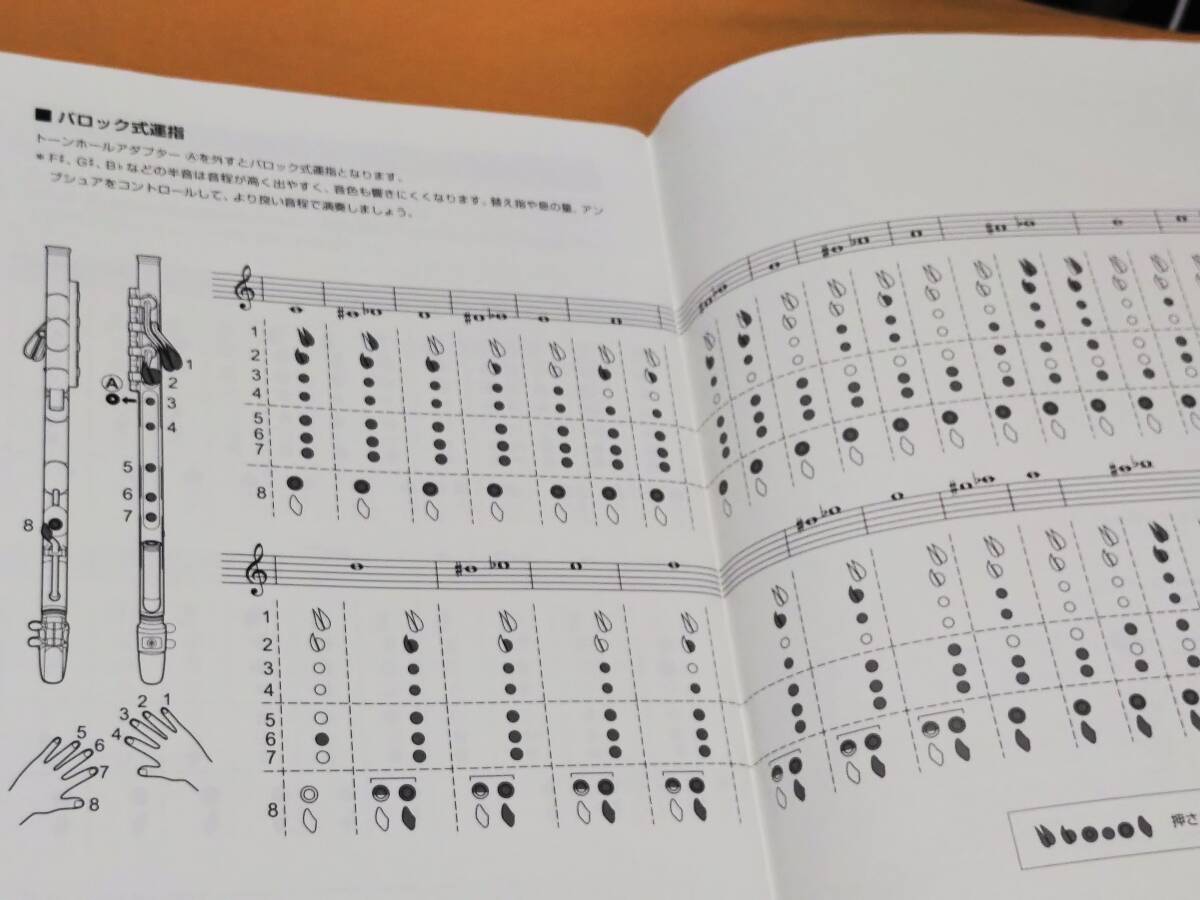 ■ バロック式運指
トーンホールアダプター Ⓐを外すとバロック式運指となります。
* F♯、G♯、B♭などの半音は音程が高く出やすく、音色も響きにくくなります。替え指や息の量、アン
ブシュアをコントロールして、より良い音程で演奏しましょう。
A
1
2
3
4
5
6
7
8
1
2
3
4
5
6
7
8
1
2
3
4
5
6
7
8
2 1
3
4
5
6
7
8
押さ